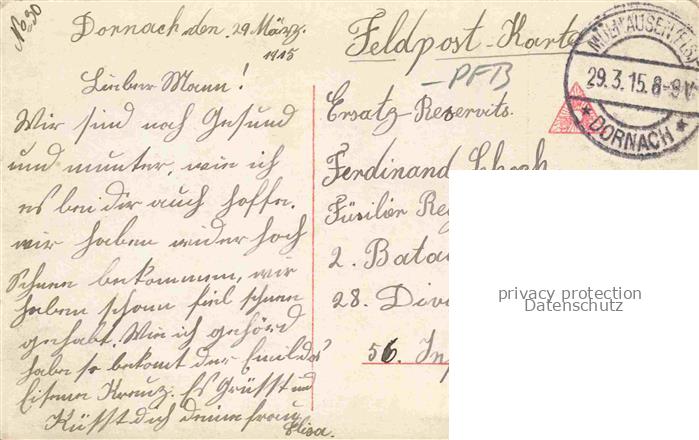 No 90
Dornach den 29 März.
1915
Lieber Mann!
Wir sind noch Gesund
und munter, wie ich
es bei dir auch hoffe.
wir haben wider hoch
Schnee bekommen, wir
haben schonn fiel schnee
gehabt. Wie ich gehörd
habe so bekomt der Emil das
Eiserne Kreuz. Es Grüsst und
Küsst dich deine frau
Elisa.
Feldpost-Karte
PFB
MÜLHAUSEN (ELS)
29.3.15. 8-9 V
* DORNACH *
Ersatz-Reservist.
Ferdinand
Füsilier Reg
2. Bata
28. Divi
56. Inf
privacy protection
Datenschutz